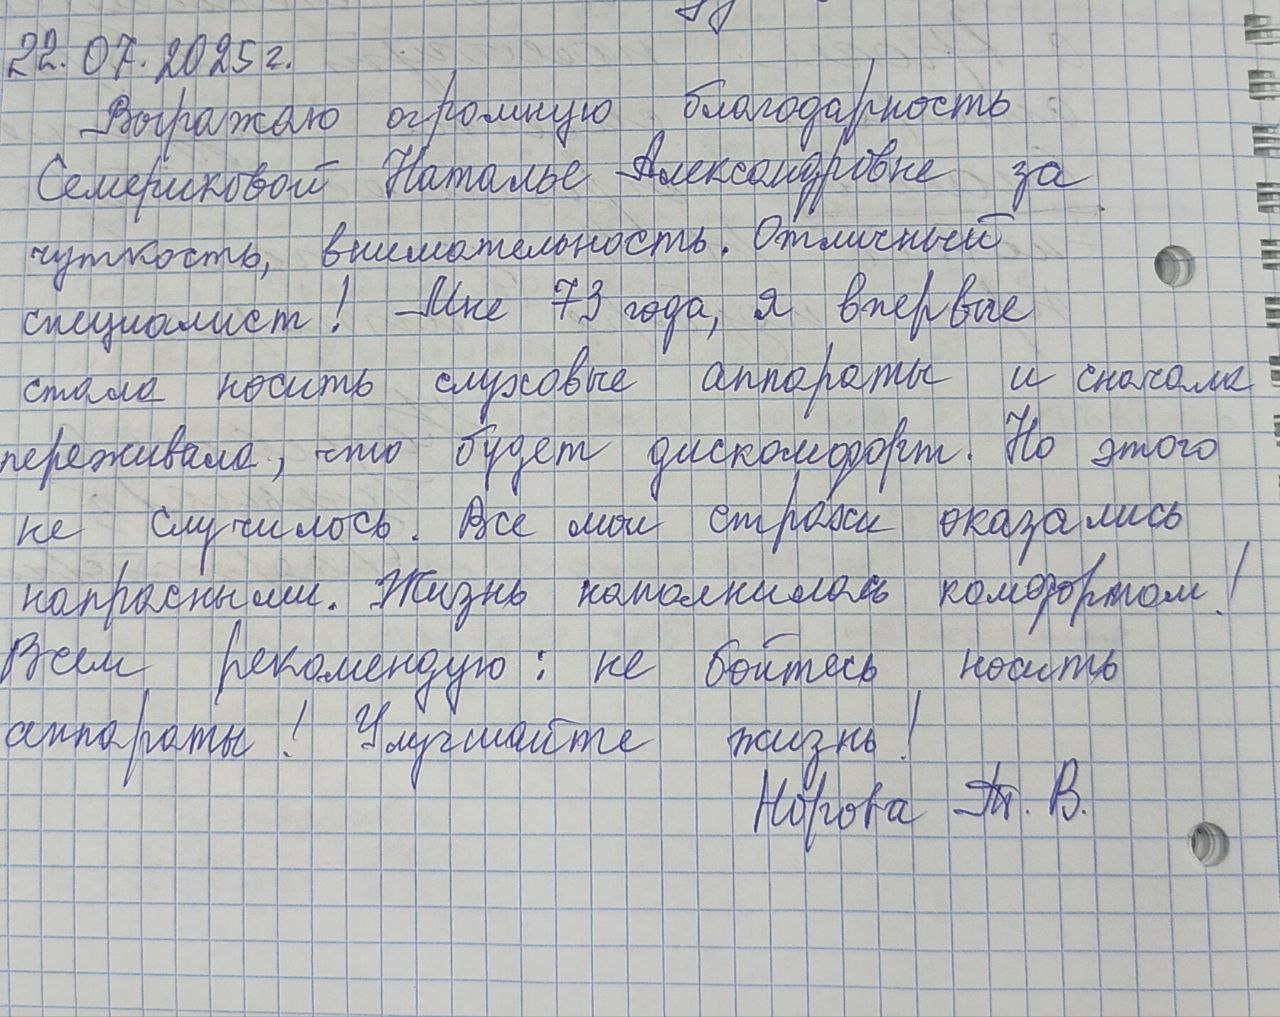 22.07.2025г.
Выражаю огромную благодарность
Семериковой Наталье Александровне за
чуткость, внимательность. Отличный
специалист! Мне 73 года, я впервые
стала носить слуховые аппараты и сначала
переживала, что будет дискомфорт. Но этого
не случилось. Все мои страхи оказались
напрасными. Жизнь наполнилась комфортом!
Всем рекомендую: не бойтесь носить
аппараты! Улучшайте жизнь!
Норова Т. В.